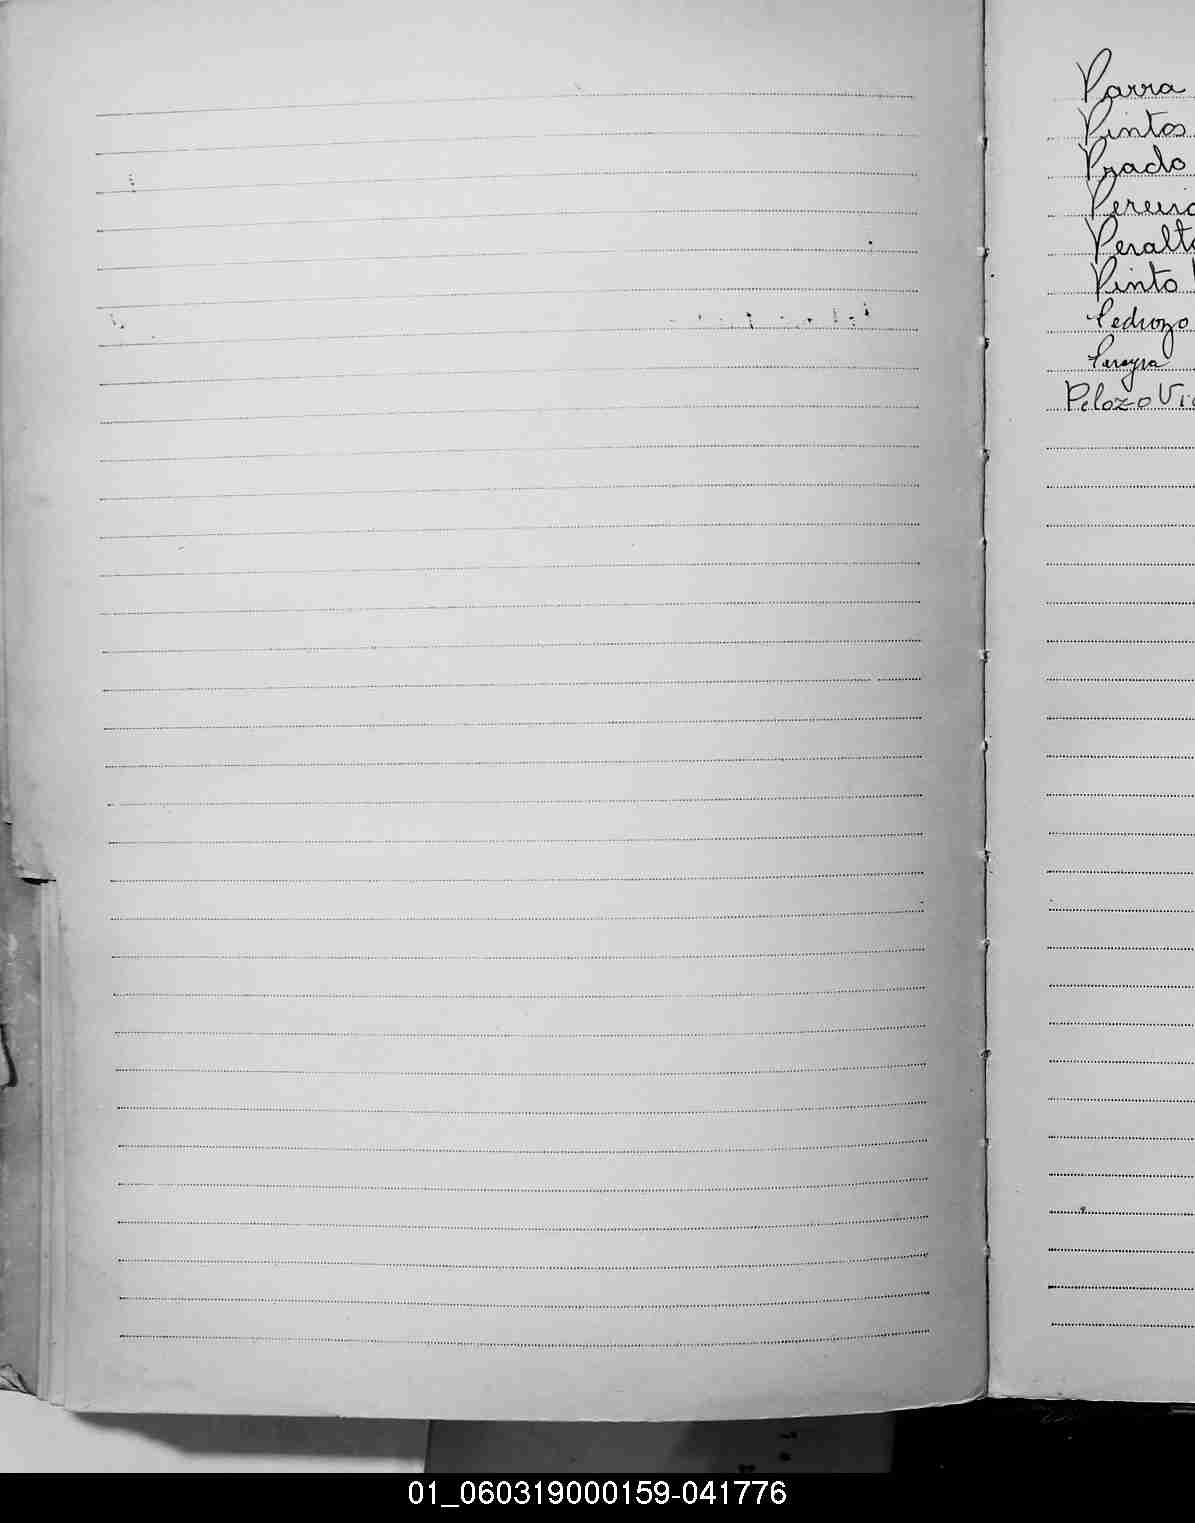 Parra
Pintos
Prado
Pereira
Peralta
Pinto
Pedrozo
Pereyra
Pelozo Vic
01_060319000159-041776